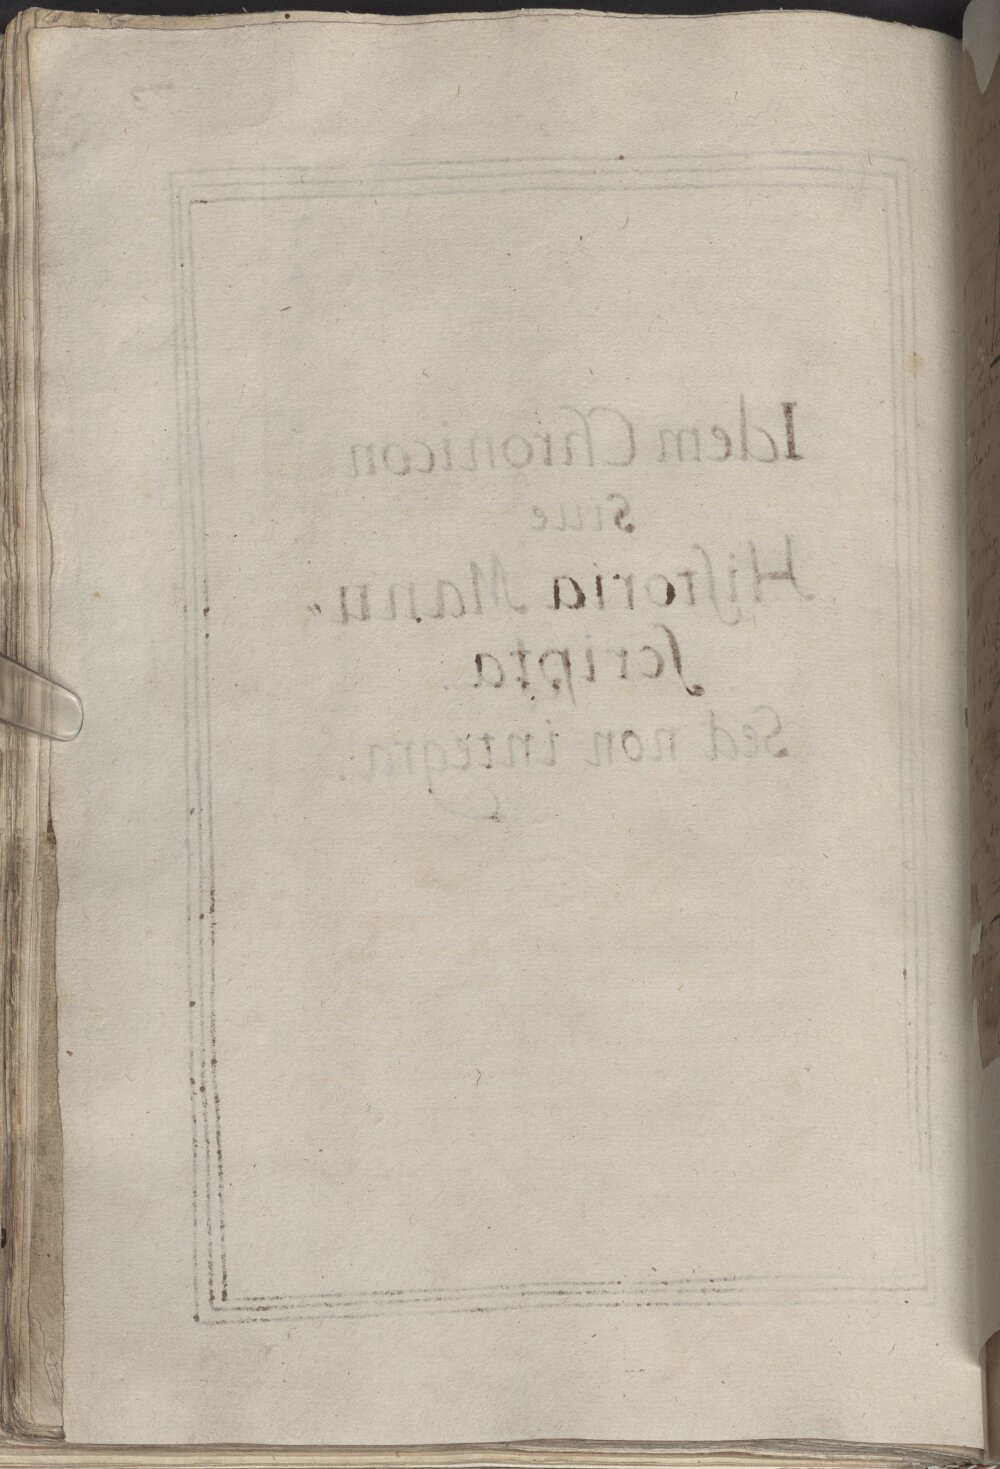 Idem Chronicon
siue
Hiſtoria Manu„
ſcripta.
Sed non integra.